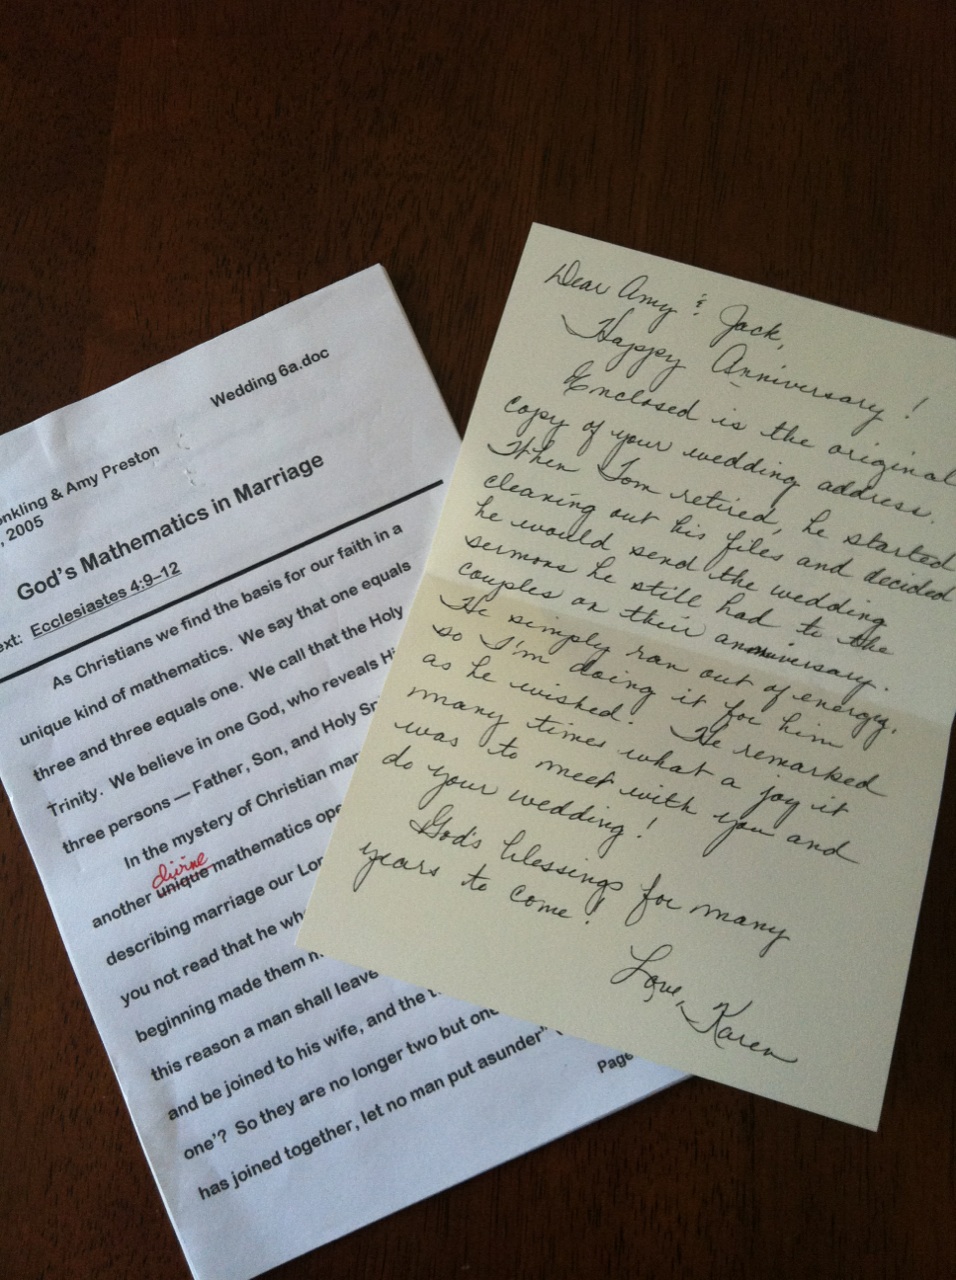 Wedding 6a.doc
nkling & Amy Preston
, 2005
God's Mathematics in Marriage
ext: Ecclesiastes 4:9–12
As Christians we find the basis for our faith in a
unique kind of mathematics. We say that one equals
three and three equals one. We call that the Holy
Trinity. We believe in one God, who reveals Hi
three persons — Father, Son, and Holy
In the mystery of Christian mar
divine
another unique mathematics ope
describing marriage our Lor
you not read that he wh
beginning made them
this reason a man shall leave
and be joined to his wife, and the
one'? So they are no longer two but one
has joined together, let no man put asunder"
Page
Dear Amy & Jack,
Happy Anniversary!
Enclosed is the original
copy of your wedding address.
When Tom retired, he started
cleaning out his files and decided
he would send the wedding
sermons he still had to the
couples on their anniversary.
He simply ran out of energy,
so I'm doing it for him
as he wished. He remarked
many times what a joy it
was to meet with you and
do your wedding!
God's blessings for many
years to come!
Love,
Karen